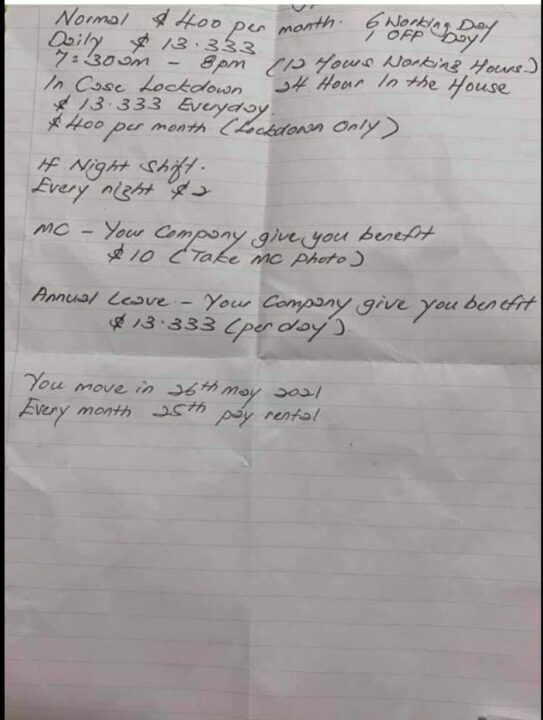 Normal $400 per month. 6 Working Day
1 OFF Day
Daily $13.333
7:30am - 8pm (12 Hours Working Hours)
In Case Lockdown 24 Hour In the House
$13.333 Everyday
$400 per month (Lockdown Only)
If Night Shift.
Every night $2
MC - Your Company give you benefit
$10 (Take MC photo)
Annual Leave - Your Company give you benefit
$13.333 (per day)
You move in 26th May 2021
Every month 25th pay rental